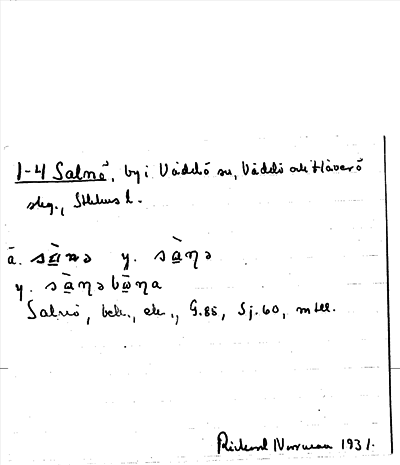 1-4 Salnö, by i Väddö sn, Väddö och Häverö
skg., Sthlms l.
ä. sànə y. sàηə
y. sàηəbωηa
Salnö, bebu., G.85, Sj.60, m fll.
Rickard Norrman 1931.